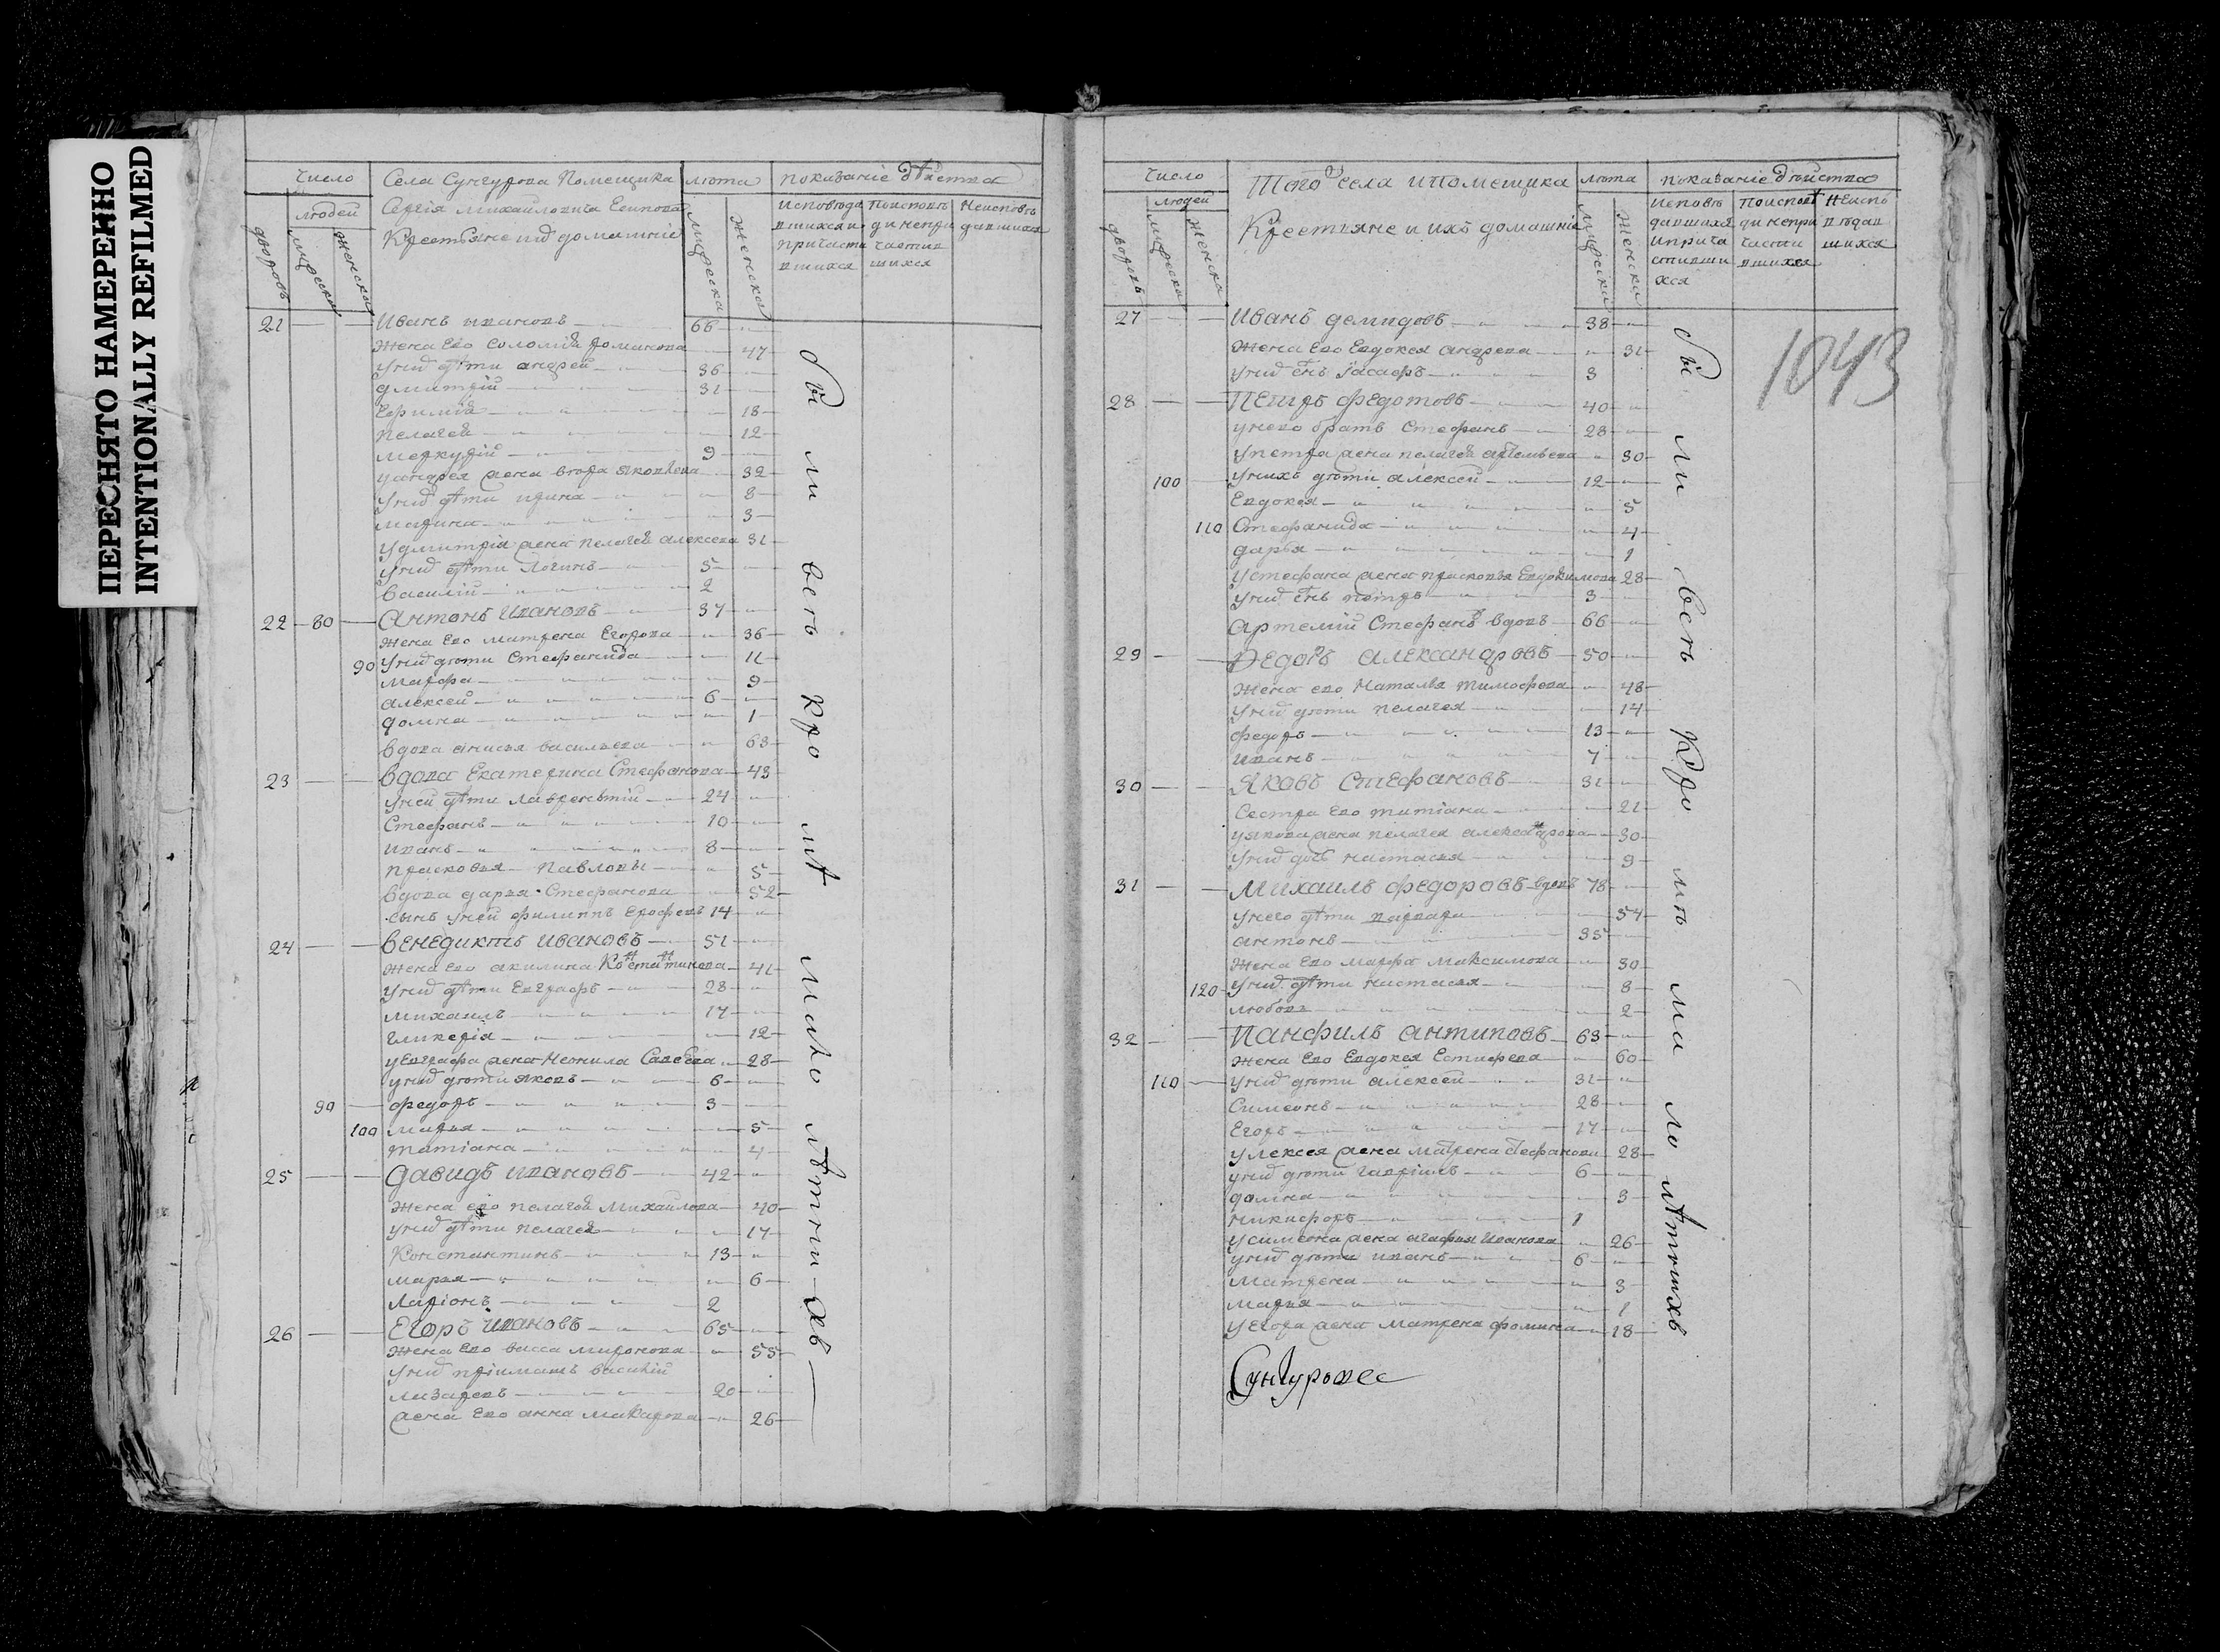 ПЕРЕСНЯТО НАМЕРЕННО
INTENTIONALLY REFILMED
Число
Села Сунгурова Помещика
лѣта
показаніе дѣйства
людей
Сергія Михайловича Есипова
Крестьяне ихъ домашніе
дворовъ
мужеска
женска
мужеска
женска
исповѣда вшихся и причасти вшихся
по исповѣ ди непри частив шихся
Неисповѣ давшихся
21 Иванъ ивановъ 66
жена Его соломида романова 47
у нихъ дѣти андрей 36
дмитрій 31
Ефимия 18
пелагея 12
меркурій 9
у андрея жена втора яковлева 32
у нихъ дѣти ирина 8
марина 3
у дмитрія жена пелагея алексева 31
у нихъ дѣти Логинъ 5
василій 2
22 80 Антонъ Ивановъ 37
жена Его матрена Егорова 36
90 у нихъ дѣти Стефанида 11
марфа 9
алексей 6
домна 1
вдова анисья васильева 63
23 вдова Екатерина Стефанова 43
у ней дѣти лаврентий 24
Стефанъ 10
иванъ 8
прасковья Павловы 5
вдова дарья Стефанова 52
сынъ у ней филиппъ Ерофеевъ 14
24 Венедиктъ ивановъ 51
жена Его акилина Костатинова 41
у нихъ дѣти Евграфъ 28
михаилъ 17
гликерія 12
у Евграфа жена Неонила Савева 28
у нихъ дѣти яковъ 6
90 федоръ 3
100 марья 5
татіана 4
25 Давидъ ивановъ 42
жена его пелагея михайлова 40
у нихъ дѣти пелагея 17
Константинъ 13
марья 6
Ларіонъ 2
26 Егоръ ивановъ 65
жена Его васса миронова 55
у нихъ пріимашъ василій
лазаревъ 20
жена Его анна макарова 26
Сіи ли весь Кро мѣ мало лѣтни-хъ
Число
Того села и помещика
лѣта
показаніе дѣйства
людей
Крестьяне и ихъ домашніе
дворовъ
мужеска
женска
мужеска
женска
исповѣ давшихся и прича стивши хся
по исповѣ ди непри части вшихся
Неиспо вѣдав шихся
1043
27 Иванъ демидовъ 38
жена Его Евдокея андреева 31
у нихъ снъ іасафъ 3
28 Петръ федотовъ 40
у него братъ Стефанъ 28
у петра жена пелагея артемьева 30
100 у нихъ дѣти алексей 12
Евдокея 5
110 Стефанида 4
дарья 1
у стефана жена прасковья Евдокимова 28
у нихъ снъ петръ 3
артемій Стефанъ вдовъ 66
29 Федоръ александровъ 50
жена его наталья тимофеева 48
у нихъ дѣти пелагея 14
федоръ 13
иванъ 7
30 Яковъ Стефановъ 31
Сестра Его татіана 21
у якова жена пелагея александрова 30
у нихъ дочь настасья 9
31 Михаилъ федоровъ вдовъ 78
у него дѣти варвара 54
антонъ 35
жена Его марфа максимова 30
120 у нихъ дѣти настасья 8
любовь 2
32 Панфилъ антиповъ 63
жена Его Евдокея Естифеева 60
110 у нихъ дѣти алексей 31
Симеонъ 28
Егоръ 17
у лексея жена матрена стефанова 28
у нихъ дѣти гавріилъ 6
домна 3
никифоръ 1
у симеона жена агафья иванова 26
у нихъ дѣти иванъ 6
матрена 3
марья 1
у Егора жена матрена фомина 18
Сіи ли весь Кро мѣ ма ло лѣтнихъ
Сунгурове